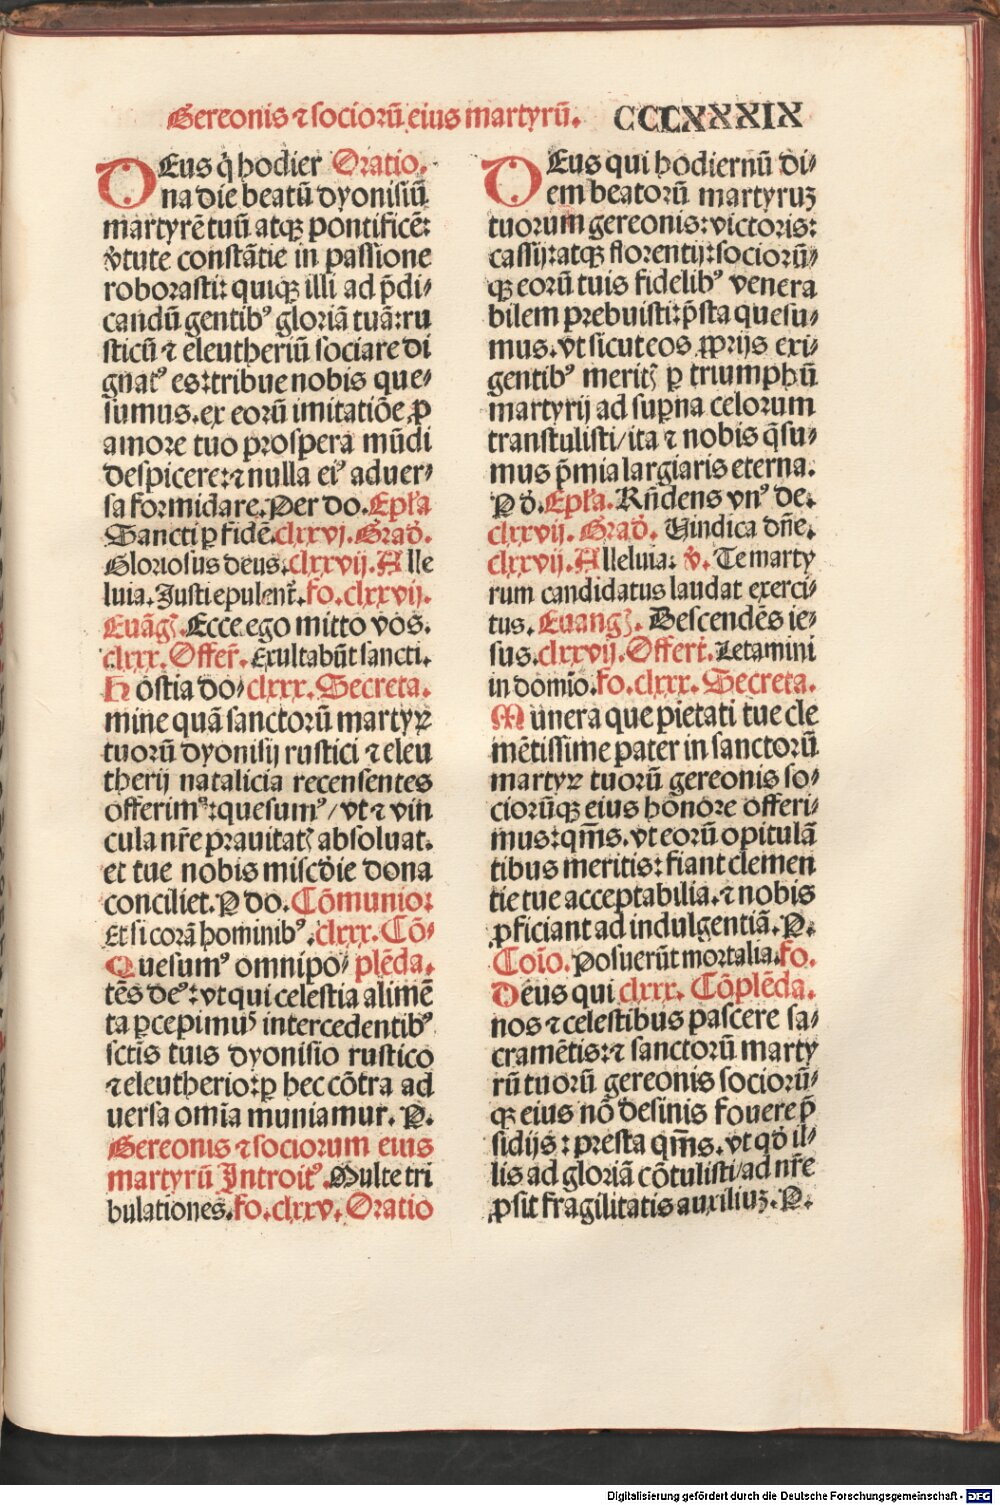 Gereonis ⁊ sociorū eius martyrū. CCLXXXIX
DEus q̇ hodier Oratio.
na die beatū dyonisiū
martyrē tuū atqꝫ pontificē:
v̇tute constātie in passione
roborasti: quiqꝫ illi ad p̄di⸗
candū gentibꝰ gloriā tuā: ru
sticū ⁊ eleutheriū sociare di
gnatꝰ es: tribue nobis que⸗
sumus. ex eorū imitatiōe ꝓ
amore tuo prospera mūdi
despicere: ⁊ nulla eiꝰ aduer⸗
sa formidare. Per do. Epl̄a
Sancti ꝑ fidē. clxxvj. Grad̛.
Gloriosus deus. clxxvij. Alle
luia. Justi epulent᷑. fo. clxxvij.
Euāgꝭ. Ecce ego mitto vos.
clxxx. Offer̄. Exultabūt sancti.
Hostia do⸗ clxxx. Secreta.
mine quā sanctorū martyꝝ
tuorū dyonisij rustici ⁊ eleu
therij natalicia recensentes
offerimꝰ: quesumꝰ / vt ⁊ vin
cula nr̄e prauitatꝭ absoluat.
et tue nobis misc̄die dona
conciliet. P do. Cōmunio:
Et si corā hominibꝰ. clxxx. Cō⸗
Quesumꝰ omnipo⸗ plēda.
tēs deꝰ: vt qui celestia alimē
ta ꝑcepimuꝭ intercedentibꝰ
sctīs tuis dyonisio rustico
⁊ eleutherio: ꝑ hec cōtra ad
uersa om̄ia muniamur. P.
Gereonis ⁊ sociorum eius
martyrū Introitꝰ. Multe tri
bulationes. fo. clxxv. Oratio
DEus qui hodiernū di⸗
em beatorū martyruꝫ
tuorum gereonis: victoris:
cassij: atqꝫ florentij: sociorū⸗
qꝫ eorū tuis fidelibꝰ venera
bilem prebuisti: p̄sta quesu⸗
mus. vt sicut eos ꝓprijs exi⸗
gentibꝰ meritꝭ ꝑ triumphū
martyrij ad suꝑna celorum
transtulisti / ita ⁊ nobis q̄su⸗
mus p̄mia largiaris eterna.
P d̛. Epl̄a. Rn̄dens vnꝰ de.
clxxvij. Grad̛. Vindica dn̄e.
clxxvij. Alleluia: v̛. Te marty
rum candidatus laudat exerci⸗
tus. Euangꝭ. Descendēs ie⸗
sus. clxxvij. Offert̄. Letamini
in domīo. fo. clxxx. Secreta.
Munera que pietati tue cle
mētissime pater in sanctorū
martyꝝ tuorū gereonis so⸗
ciorūqꝫ eius honore offeri⸗
mus: qm̄s. vt eorū opitulā
tibus meritis: fiant clemen
tie tue acceptabilia. ⁊ nobis
ꝓficiant ad indulgentiā. P.
Coīo. Posuerūt mortalia. fo.
Deus qui clxxx. Cōplēda.
nos ⁊ celestibus pascere sa⸗
cramētis: ⁊ sanctorū marty
rū tuorū gereonis sociorū⸗
qꝫ eius nō desinis fouere p̄
sidijs: presta qm̄s. vt qd̛ il⸗
lis ad gloriā cōtulisti / ad nr̄e
ꝓsit fragilitatis auxiliuꝫ. P.
Digitalisierung gefördert durch die Deutsche Forschungsgemeinschaft - DFG